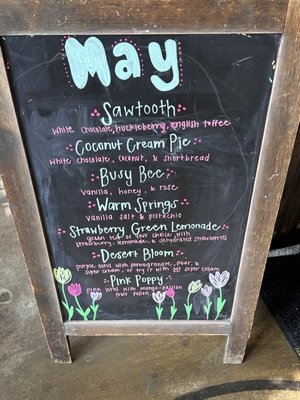 May
Sawtooth
White chocolate, huckleberry, english toffee
Coconut Cream Pie
White chocolate, coconut, & shortbread
Busy Bee
vanilla, honey, & rose
Warm Springs
vanilla salt & pistachio
Strawberry Green Lemonade
green tea of your choice with
strawberry, lemonade, & dehydrated strawberries
Desert Bloom
purple lotus with pomegranate, pear, &
super cream, or try it with super cream
Pink Poppy
pink lotus with mango-passion
fruit fusion